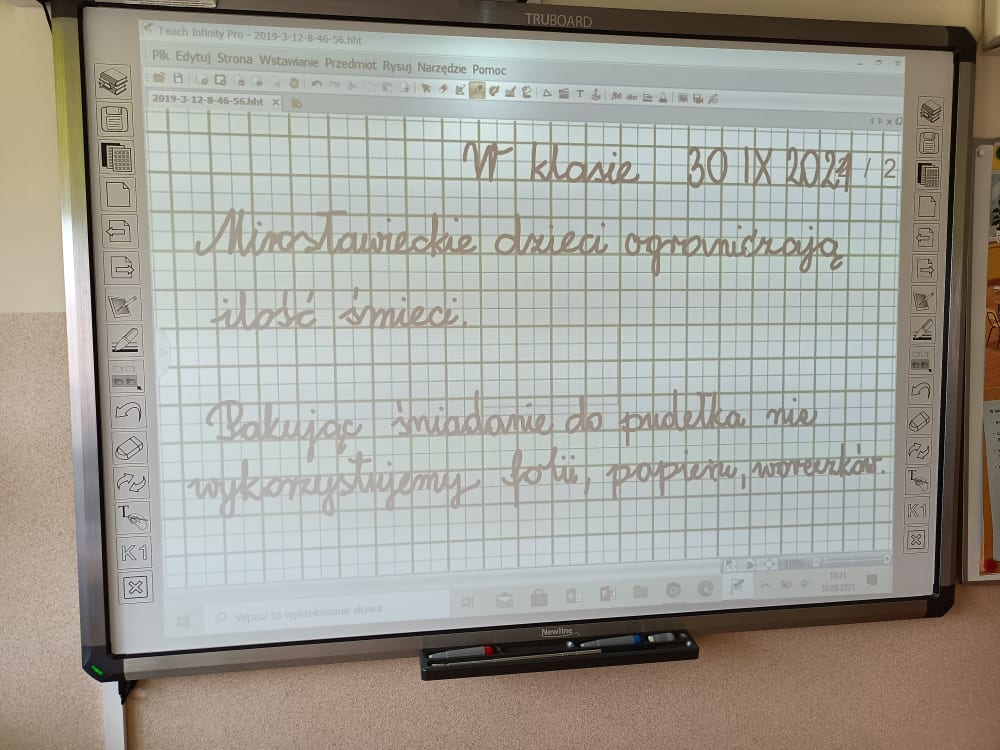 TRUBOARD
Teach Infinity Pro - 2019-3-12-8-46-56.hht
Plk Edytuj Strona Wstawianie Przedmiot Rysuj Narzędzie Pomoc
2019-3-12-8-46-56.hht
W klasie 30 IX 2021 / 2
Mirosławieckie dzieci ograniczają
ilość śmieci.
Pakując śniadanie do pudełka nie
wykorzystujemy folii, papieru, woreczków.
K1
K1
10%
Wpisz tu wyszukiwane słowa
10:21
30.09.2021
Newline